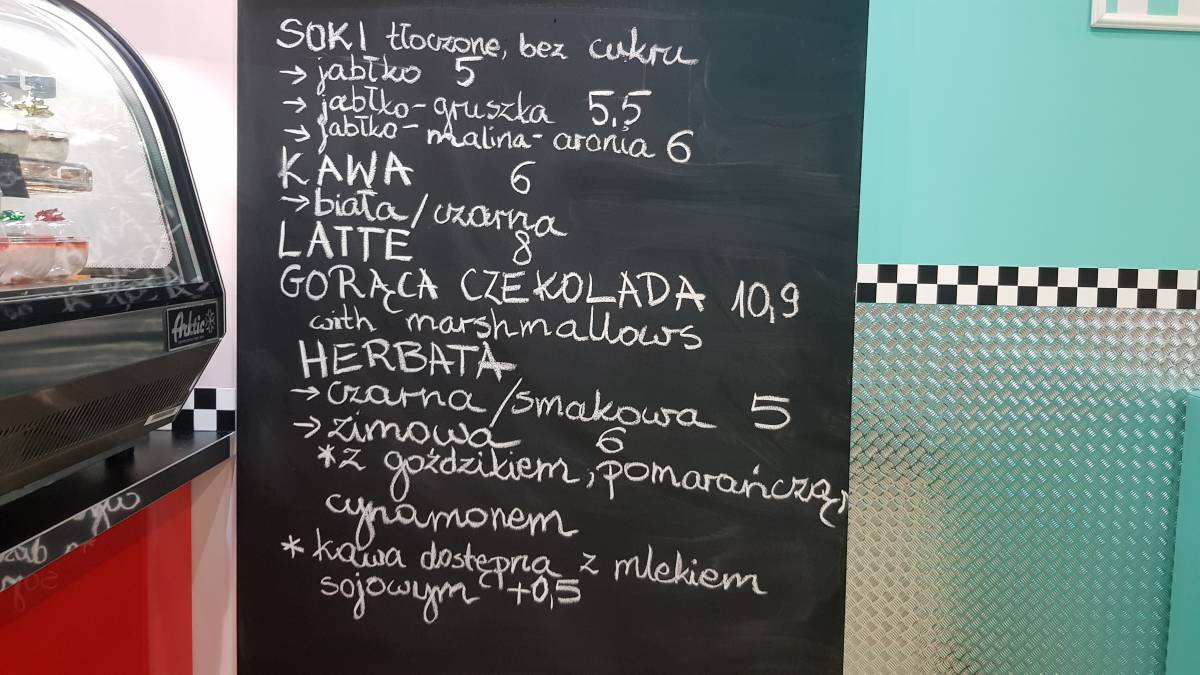 SOKI tłoczone, bez cukru
→ jabłko 5
→ jabłko-gruszka 5,5
→ jabłko-malina-aronia 6
KAWA 6
→ biała/czarna
LATTE 8
GORĄCA CZEKOLADA 10,9
with marshmallows
HERBATA
→ czarna/smakowa 5
→ zimowa 6
* z goździkiem, pomarańczą,
cynamonem
* kawa dostępna z mlekiem
sojowym +0,5
Arktic